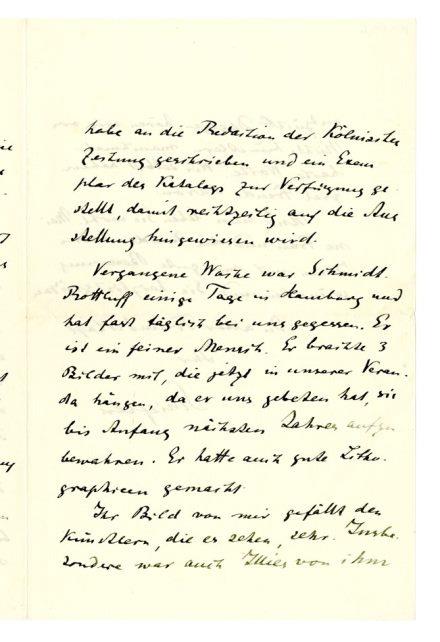 habe an die Redaktion der Kölnischen
Zeitung geschrieben und ein Exem
plar des Katalogs zur Verfügung ge
stellt, damit rechtzeitig auf die Aus
stellung hingewiesen wird.
Vergangene Woche war Schmidt-
Rottluff einige Tage in Hamburg und
hat fast täglich bei uns gegessen. Er
ist ein feiner Mensch. Er brachte 3
Bilder mit, die jetzt in unserer Veran-
da hängen, da er uns gebeten hat, sie
bis Anfang nächsten Jahres aufzu
bewahren. Er hatte auch gute Litho-
graphieen gemacht.
Ihr Bild von mir gefällt den
Künstlern, die es sehen, sehr. Insbe-
sondere war auch Illies von ihm